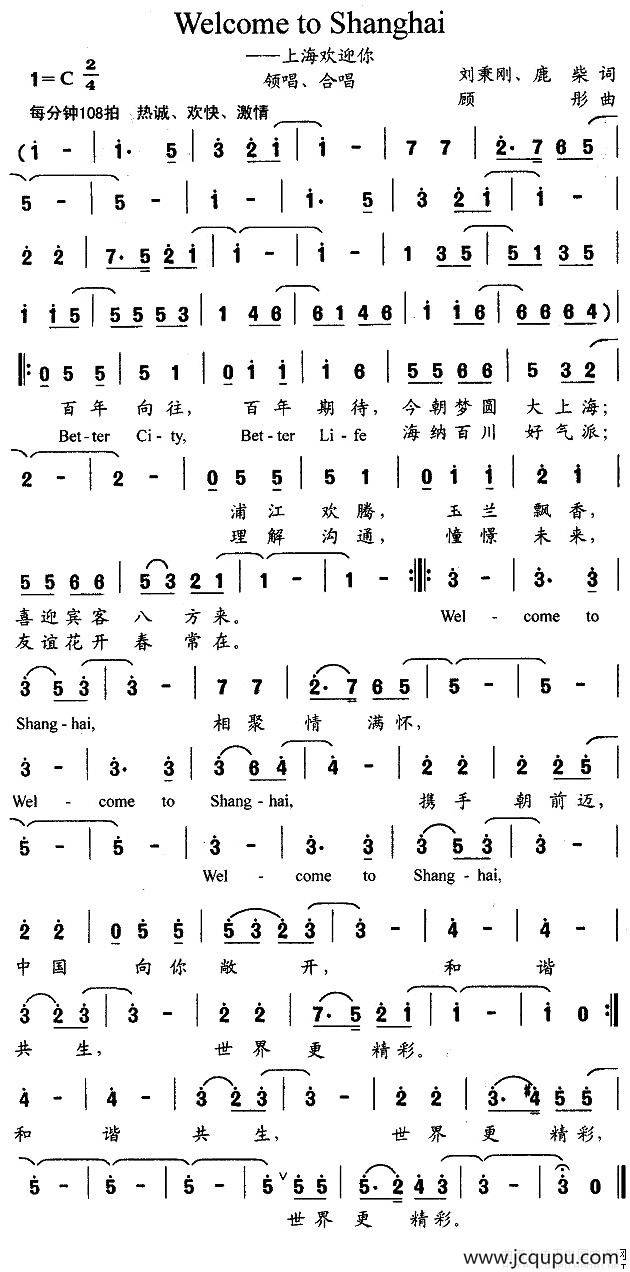 Welcome to Shanghai
——上海欢迎你
1=C 2/4
领唱、合唱
刘秉刚、鹿 柴 词
顾 彤 曲
每分钟108拍 热诚、欢快、激情
( i - | i· 5 | 3 2 i | i - | 7 7 | 2· 7 6 5 |
5 - | 5 - | i - | i· 5 | 3 2 i | i - |
2 2 | 7· 5 2 i | i - | i - | 1 3 5 | 5 1 3 5 |
i i 5 | 5 5 5 3 | 1 4 6 | 6 1 4 6 | i i 6 | 6 6 6 4 )
|: 0 5 5 | 5 1 | 0 i i | i 6 | 5 5 6 6 | 5 3 2 |
百年 向往, 百年 期待, 今朝梦圆 大上海;
Bet-ter Ci-ty, Bet-ter Li-fe 海纳百川 好气派;
2 - | 2 - | 0 5 5 | 5 1 | 0 i i | 2 i |
浦江 欢腾, 玉兰 飘香,
理解 沟通, 憧憬 未来,
5 5 6 6 | 5 3 2 1 | 1 - | 1 - :|: 3 - | 3· 3 |
喜迎宾客 八 方来。 Wel - come to
友谊花开 春 常在。
3 5 3 | 3 - | 7 7 | 2· 7 6 5 | 5 - | 5 - |
Shang-hai, 相聚 情 满怀,
3 - | 3· 3 | 3 6 4 | 4 - | 2 2 | 2 2 5 |
Wel - come to Shang-hai, 携手 朝前迈,
5 - | 5 - | 3 - | 3· 3 | 3 5 3 | 3 - |
Wel - come to Shang-hai,
2 2 | 0 5 5 | 5 3 2 3 | 3 - | 4 - | 4 - |
中国 向你 敞 开, 和 谐
3 2 3 | 3 - | 2 2 | 7· 5 2 i | i - | i 0 :|
共 生, 世界 更 精彩。
4 - | 4 - | 3 2 3 | 3 - | 2 2 | 3· #4 5 5 |
和 谐 共 生, 世界 更 精彩,
5 - | 5 - | 5 - | 5 ∨ 5 5 | 5· 2 4 3 | 3 - | 3 0 ‖
世界 更 精彩。
www.jcqupu.com